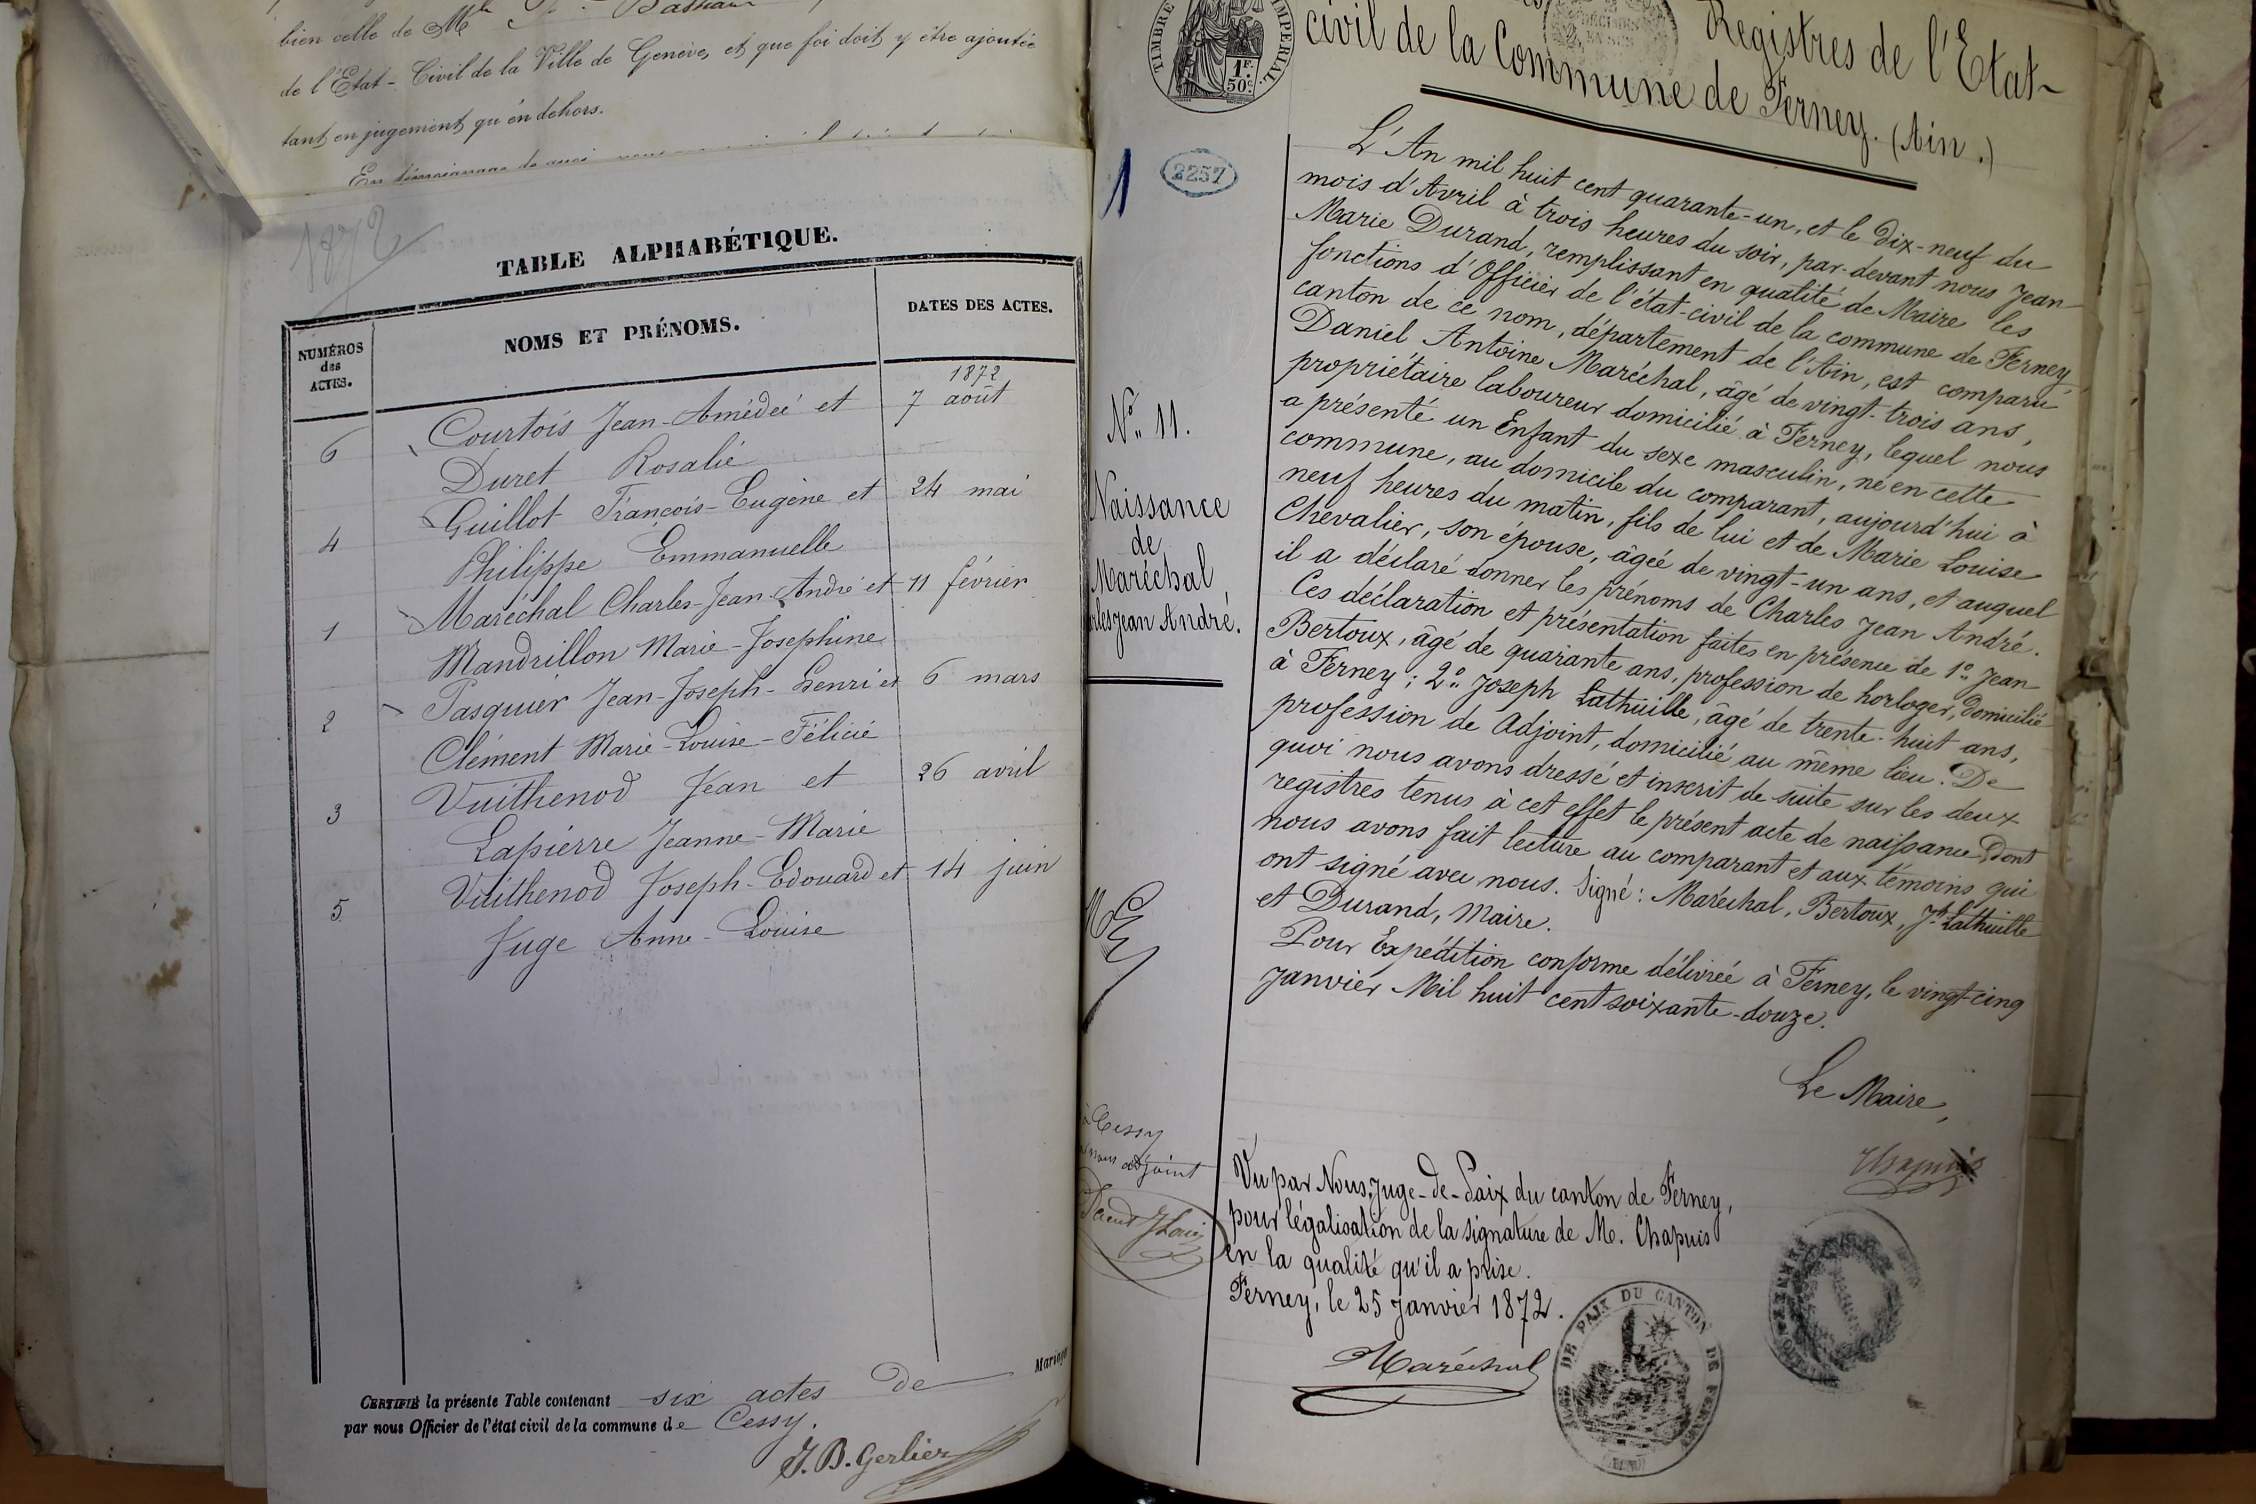 bien celle de Mr
de l'Etat-Civil de la Ville de Genève, et que foi doit y être ajoutée
tant en jugement qu'en dehors.
1872
TABLE ALPHABÉTIQUE.
NUMÉROS des ACTES.
NOMS ET PRÉNOMS.
DATES DES ACTES.
1872
6 Courtois Jean-Amédée et 7 août
Duret Rosalie
4 Guillot François-Eugène et 24 mai
Philippe Emmanuelle
1 Maréchal Charles-Jean-André et 11 février
Mandrillon Marie-Josephine
2 Pasquier Jean-Joseph-Henri et 6 mars
Clément Marie-Louise-Félicie
3 Vuithenod Jean et 26 avril
Lapierre Jeanne-Marie
5 Vuithenod Joseph-Edouard et 14 juin
Juge Anne-Louise
CERTIFIÉ la présente Table contenant six actes de Mariage
par nous Officier de l'état civil de la commune de Cessy.
J. B. Gerlier
TIMBRE IMPÉRIAL.
1F. 50c.
Registres de l'Etat-
civil de la Commune de Ferney. (Ain.)
1
2257
No. 11.
Naissance
de
Maréchal
Jean André.
L'An mil huit cent quarante-un, et le dix-neuf du
mois d'Avril à trois heures du soir, par-devant nous Jean
Marie Durand, remplissant en qualité de Maire les
fonctions d'Officier de l'état-civil de la commune de Ferney
canton de ce nom, département de l'Ain, est comparu
Daniel Antoine Maréchal, âgé de vingt-trois ans,
propriétaire laboureur domicilié à Ferney, lequel nous
a présenté un Enfant du sexe masculin, né en cette
commune, au domicile du comparant, aujourd'hui à
neuf heures du matin, fils de lui et de Marie Louise
Chevalier, son épouse, âgée de vingt-un ans, et auquel
il a déclaré donner les prénoms de Charles Jean André.
Ces déclaration et présentation faites en présence de 1o. Jean
Bertoux, âgé de quarante ans, profession de horloger, domicilié
à Ferney; 2o. Joseph Lathuille, âgé de trente-huit ans,
profession de Adjoint, domicilié au même lieu. De
quoi nous avons dressé et inscrit de suite sur les deux
registres tenus à cet effet le présent acte de naissance dont
nous avons fait lecture au comparant et aux témoins qui
ont signé avec nous. Signé: Maréchal, Bertoux, Jh Lathuille
et Durand, Maire.
Pour Expédition conforme délivrée à Ferney, le vingt-cinq
Janvier Mil huit cent soixante-douze.
Le Maire,
Chapuis
à Cessy
adjoint
Vu par Nous, Juge-de-Paix du canton de Ferney,
pour légalisation de la signature de M. Chapuis
en la qualité qu'il a prise.
Ferney, le 25 Janvier 1872.
Maréchal
JUGE DE PAIX DU CANTON DE FERNEY